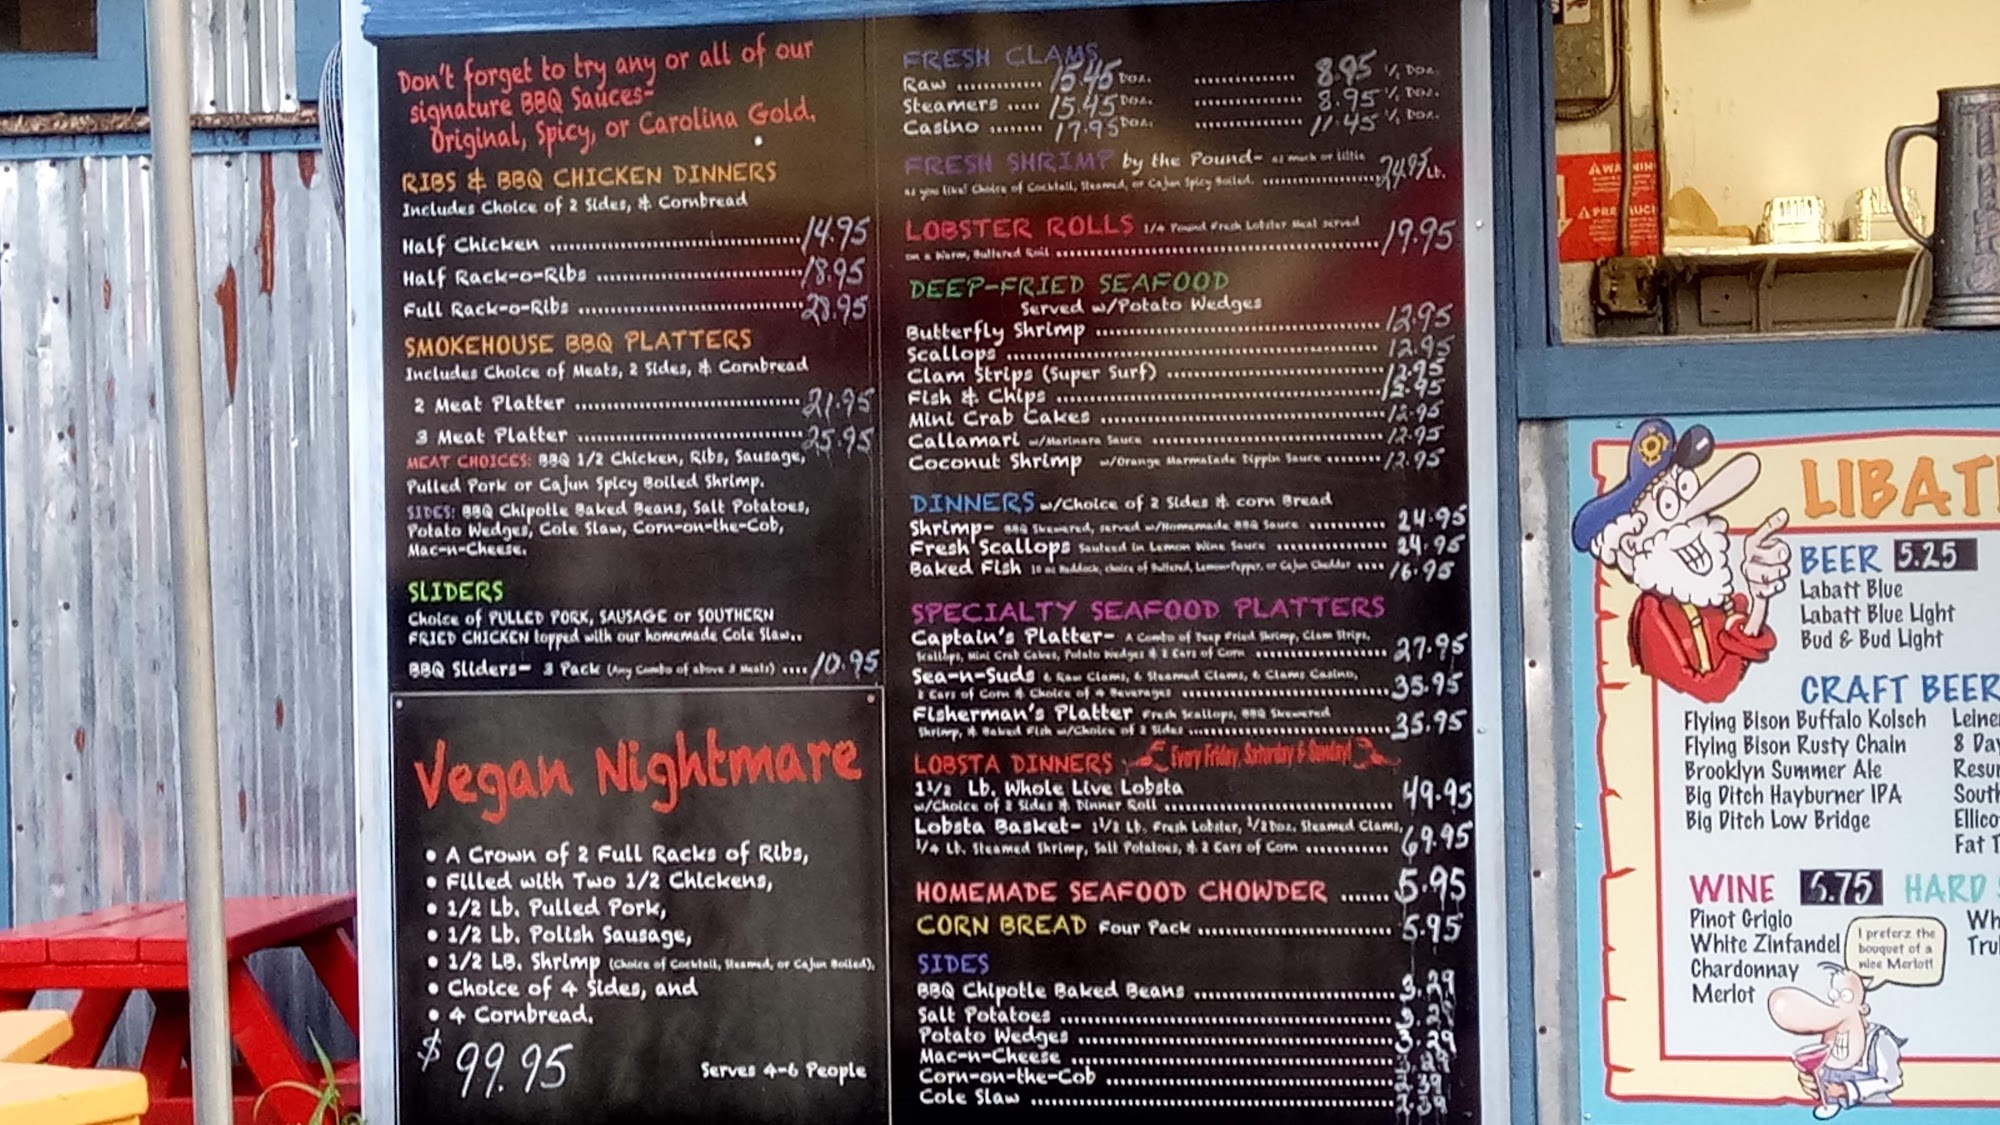 Don't forget to try any or all of our
signature BBQ Sauces-
Original, Spicy, or Carolina Gold.
RIBS & BBQ CHICKEN DINNERS
Includes Choice of 2 Sides, & Cornbread
Half Chicken 14.95
Half Rack-o-Ribs 18.95
Full Rack-o-Ribs 28.95
SMOKEHOUSE BBQ PLATTERS
Includes Choice of Meats, 2 Sides, & Cornbread
2 Meat Platter 21.95
3 Meat Platter 25.95
MEAT CHOICES: BBQ 1/2 Chicken, Ribs, Sausage,
Pulled Pork or Cajun Spicy Boiled Shrimp.
SIDES: BBQ Chipotle Baked Beans, Salt Potatoes,
Potato Wedges, Cole Slaw, Corn-on-the-Cob,
Mac-n-Cheese.
SLIDERS
Choice of PULLED PORK, SAUSAGE or SOUTHERN
FRIED CHICKEN topped with our homemade Cole Slaw..
BBQ Sliders- 3 Pack (Any Combo of above 3 Meats) .... 10.95
Vegan Nightmare
• A Crown of 2 Full Racks of Ribs,
• Filled with Two 1/2 Chickens,
• 1/2 Lb. Pulled Pork,
• 1/2 Lb. Polish Sausage,
• 1/2 LB. Shrimp (Choice of Cocktail, Steamed, or Cajun Boiled),
• Choice of 4 Sides, and
• 4 Cornbread.
$99.95 Serves 4-6 People
FRESH CLAMS
Raw 15.45 Doz. 8.95 1/2 Doz.
Steamers 15.45 Doz. 8.95 1/2 Doz.
Casino 17.95 Doz. 11.45 1/2 Doz.
FRESH SHRIMP by the Pound- as much or little
as you like! Choice of Cocktail, Steamed, or Cajun Spicy Boiled. 24.95 Lb.
LOBSTER ROLLS 1/4 Pound Fresh Lobster Meat served
on a Warm, Buttered Roll 19.95
DEEP-FRIED SEAFOOD
Served w/Potato Wedges
Butterfly Shrimp 12.95
Scallops 12.95
Clam Strips (Super Surf) 12.95
Fish & Chips
Mini Crab Cakes 12.95
Callamari w/Marinara Sauce 12.95
Coconut Shrimp w/Orange Marmalade Dippin Sauce 12.95
DINNERS w/Choice of 2 Sides & corn Bread
Shrimp- BBQ Skewered, served w/Homemade BBQ Sauce 24.95
Fresh Scallops Sauteed in Lemon Wine Sauce 24.95
Baked Fish 10 oz Haddock, choice of Buttered, Lemon-Pepper, or Cajun Cheddar .... 16.95
SPECIALTY SEAFOOD PLATTERS
Captain's Platter- A Combo of Deep Fried Shrimp, Clam Strips,
Scallops, Mini Crab Cakes, Potato Wedges & 2 Ears of Corn 27.95
Sea-n-Suds 6 Raw Clams, 6 Steamed Clams, 6 Clams Casino,
2 Ears of Corn & Choice of 4 Beverages 35.95
Fisherman's Platter Fresh Scallops, BBQ Skewered
Shrimp, & Baked Fish w/Choice of 2 Sides 35.95
LOBSTA DINNERS Every Friday, Saturday & Sunday!
1 1/2 Lb. Whole Live Lobsta
w/Choice of 2 Sides & Dinner Roll 49.95
Lobsta Basket- 1 1/2 Lb. Fresh Lobster, 1/2 Doz. Steamed Clams,
1/4 Lb. Steamed Shrimp, Salt Potatoes, & 2 Ears of Corn 69.95
HOMEMADE SEAFOOD CHOWDER ...... 5.95
CORN BREAD Four Pack 5.95
SIDES
BBQ Chipotle Baked Beans 3.29
Salt Potatoes 3.29
Potato Wedges 3.29
Mac-n-Cheese 3.29
Corn-on-the-Cob 2.39
Cole Slaw 2.39
WARNIN
LIBATI
BEER 5.25
Labatt Blue
Labatt Blue Light
Bud & Bud Light
CRAFT BEER
Flying Bison Buffalo Kolsch Leine
Flying Bison Rusty Chain 8 Day
Brooklyn Summer Ale Resur
Big Ditch Hayburner IPA South
Big Ditch Low Bridge Ellico
Fat T
WINE 5.75 HARD
Pinot Grigio Wh
White Zinfandel Tru
Chardonnay
Merlot
I preferz the
bouquet of a
nice Merlot!